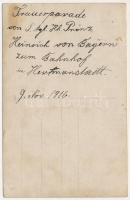 Trauerparade
von S. kgl. Hh. Prinz
Heinrich von Bayern
zum Bahnhof
in Hermannstadt.
9. Nov. 1916.